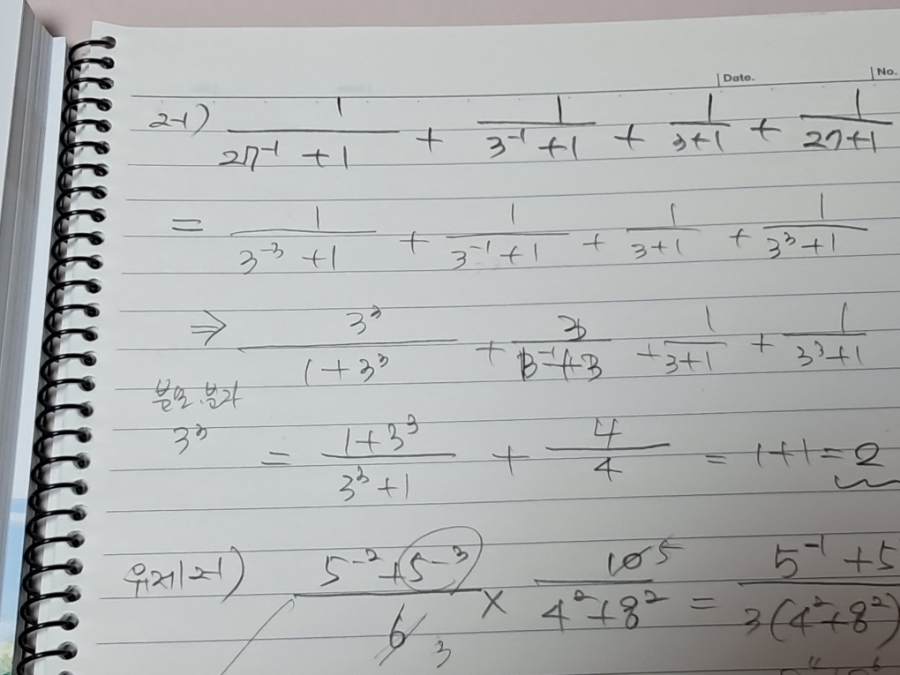 Date. No.
2-1) 1/(27⁻¹+1) + 1/(3⁻¹+1) + 1/(3+1) + 1/(27+1)
= 1/(3⁻³+1) + 1/(3⁻¹+1) + 1/(3+1) + 1/(3³+1)
⇒ 3³/(1+3³) + 3/(1+3) + 1/(3+1) + 1/(3³+1)
분모·분자
3³
= (1+3³)/(3³+1) + 4/4 = 1+1 = 2
유제 2-1) (5⁻²+5⁻³)/6 3 × 10 5/(4²+8²) = (5⁻¹+5)/(3(4²+8²))